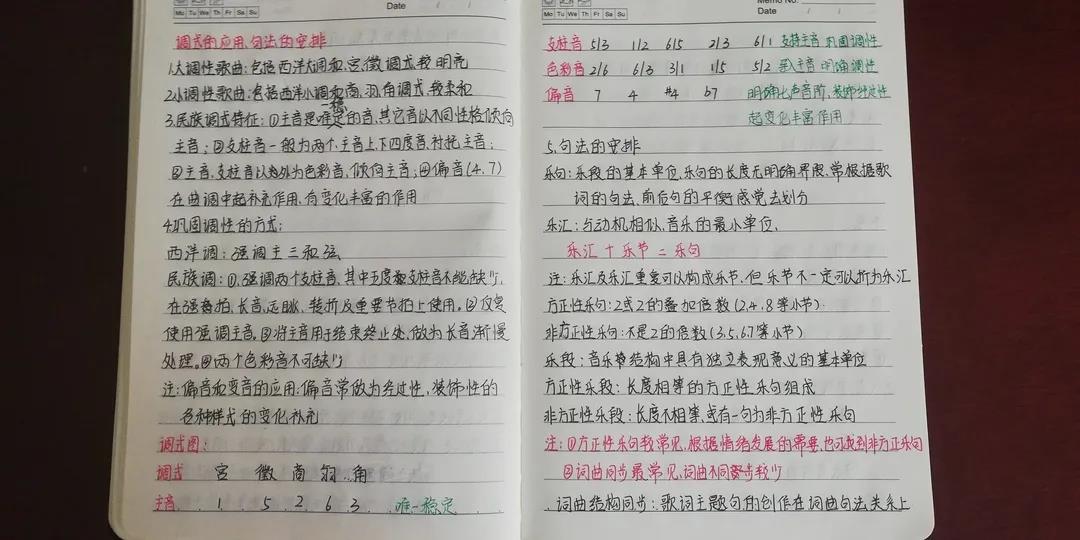 Date
Mo Tu We Th Fr Sa Su
调式的应用、句法的安排
1.大调性歌曲:包括西洋大调和宫、徵调式,较明亮
2.小调性歌曲:包括西洋小调和商、羽、角调式,较柔和
3.民族调式特征:①主音是唯一稳定的音,其它音以不同性格倾向
主音;②支柱音一般为两个,主音上、下四度音,衬托主音;
③主音、支柱音以外为色彩音,倾向主音;④偏音(4、7)
在曲调中起补充作用、有变化丰富的作用
4.巩固调性的方式:
西洋调:强调主三和弦
民族调:①、强调两个支柱音,其中五度支柱音不能缺少,
在强拍、长音、起脉、转折及重要节拍上使用。②反复
使用强调主音。③将主音用于结束终止处,做为长音渐慢
处理。④两个色彩音不可缺少
注:偏音和变音的应用:偏音常做为经过性、装饰性的
各种样式的变化补充
调式图:
调式 宫 徵 商 羽 角
主音 1 5 2 6 3 唯一稳定
Memo No.
Date
Mo Tu We Th Fr Sa Su
支柱音 5/3 1/2 6/5 2/3 6/1 支持主音 巩固调性
色彩音 2/6 6/3 3/1 1/5 5/2 主音 明确调性
偏音 7 4 #4 b7 明确七声音阶、装饰经过性
起变化丰富作用
5.句法的安排
乐句:乐段的基本单位,乐句的长度无明确界限,常根据歌
词的句法,前后句的平衡感觉去划分
乐汇:与动机相似,音乐的最小单位,
乐汇+乐节=乐句
注:乐汇及乐汇重复可以构成乐节,但乐节不一定可以拆为乐汇
方正性乐句:2或2的叠加倍数(2,4,8等小节)
非方正性乐句:不是2的倍数(3,5,6,7等小节)
乐段:音乐结构中具有独立表现意义的基本单位
方正性乐段:长度相等的方正性乐句组成
非方正性乐段:长度不相等,或有一句为非方正性乐句
注:①方正性乐句较常见,根据情绪发展的需要,也可找到非方正乐句
②词曲同步最常见,词曲不同步较少
词曲结构同步:歌词主题句的创作在词曲句法关系上